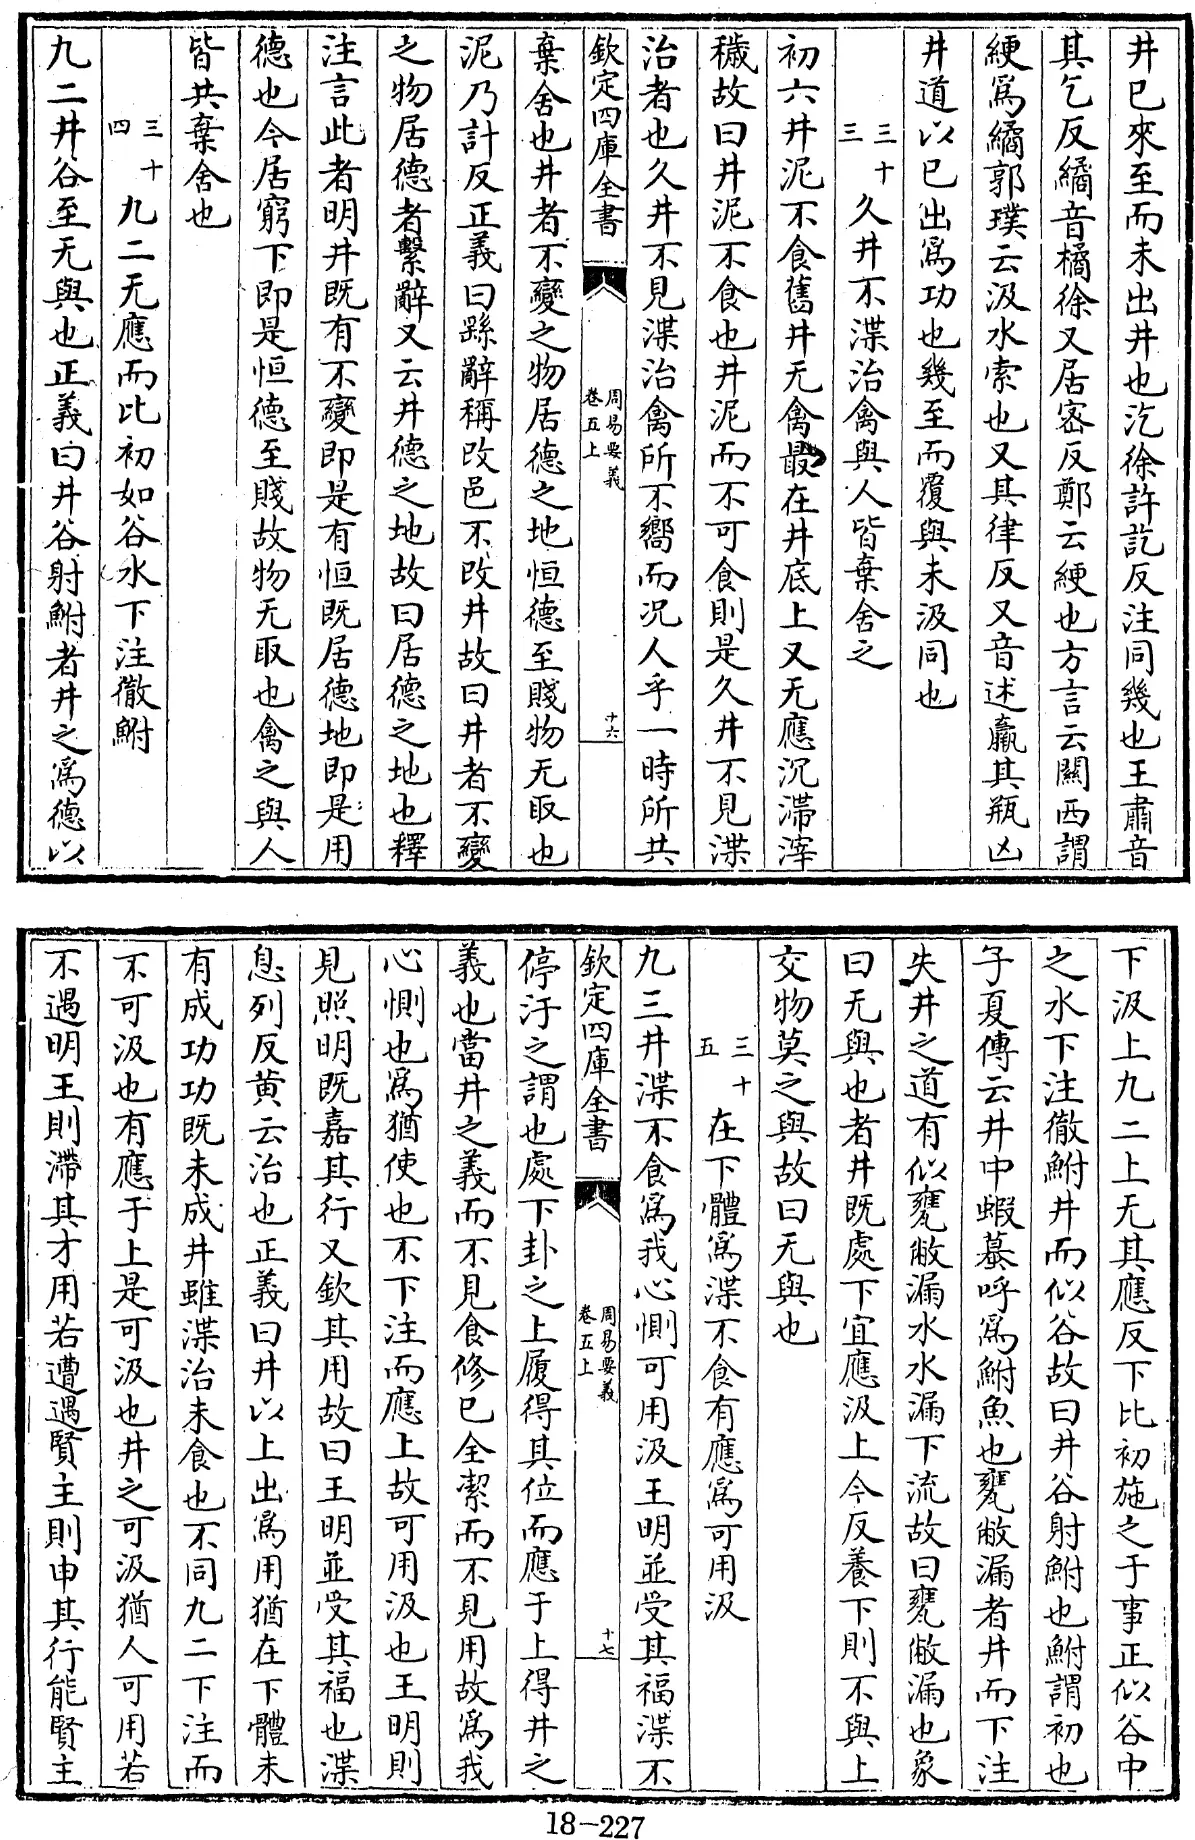 井已來至而未出井也汔徐許訖反注同幾也王肅音
其乞反繘音橘徐又居密反鄭云綆也方言云關西謂
綆爲繘郭璞云汲水索也又其律反又音述羸其瓶凶
井道以已出爲功也幾至而覆與未汲同也
三十三 久井不渫治禽與人皆棄舍之
初六井泥不食舊井无禽最在井底上又无應沉滯滓
穢故曰井泥不食也井泥而不可食則是久井不見渫
治者也久井不見渫治禽所不嚮而况人乎一時所共
欽定四庫全書 周易要義卷五上 十六
棄舍也井者不變之物居德之地恒德至賤物无取也
泥乃計反正義曰繇辭稱改邑不改井故曰井者不變
之物居德者繫辭又云井德之地故曰居德之地也釋
注言此者明井既有不變即是有恒既居德地即是用
德也今居窮下即是恒德至賤故物无取也禽之與人
皆共棄舍也
三十四 九二无應而比初如谷水下注徹鮒
九二井谷至无與也正義曰井谷射鮒者井之爲德以
下汲上九二上无其應反下比初施之于事正似谷中
之水下注徹鮒井而似谷故曰井谷射鮒也鮒謂初也
子夏傳云井中蝦蟇呼爲鮒魚也甕敝漏者井而下注
失井之道有似甕敝漏水水漏下流故曰甕敝漏也象
曰无與也者井既處下宜應汲上今反養下則不與上
交物莫之與故曰无與也
三十五 在下體爲渫不食有應爲可用汲
九三井渫不食爲我心惻可用汲王明並受其福渫不
欽定四庫全書 周易要義卷五上 十七
停汙之謂也處下卦之上履得其位而應于上得井之
義也當井之義而不見食修已全潔而不見用故爲我
心惻也爲猶使也不下注而應上故可用汲也王明則
見照明既嘉其行又欽其用故曰王明並受其福也渫
息列反黄云治也正義曰井以上出爲用猶在下體未
有成功功既未成井雖渫治未食也不同九二下注而
不可汲也有應于上是可汲也井之可汲猶人可用若
不遇明王則滯其才用若遭遇賢主則申其行能賢主
18-227